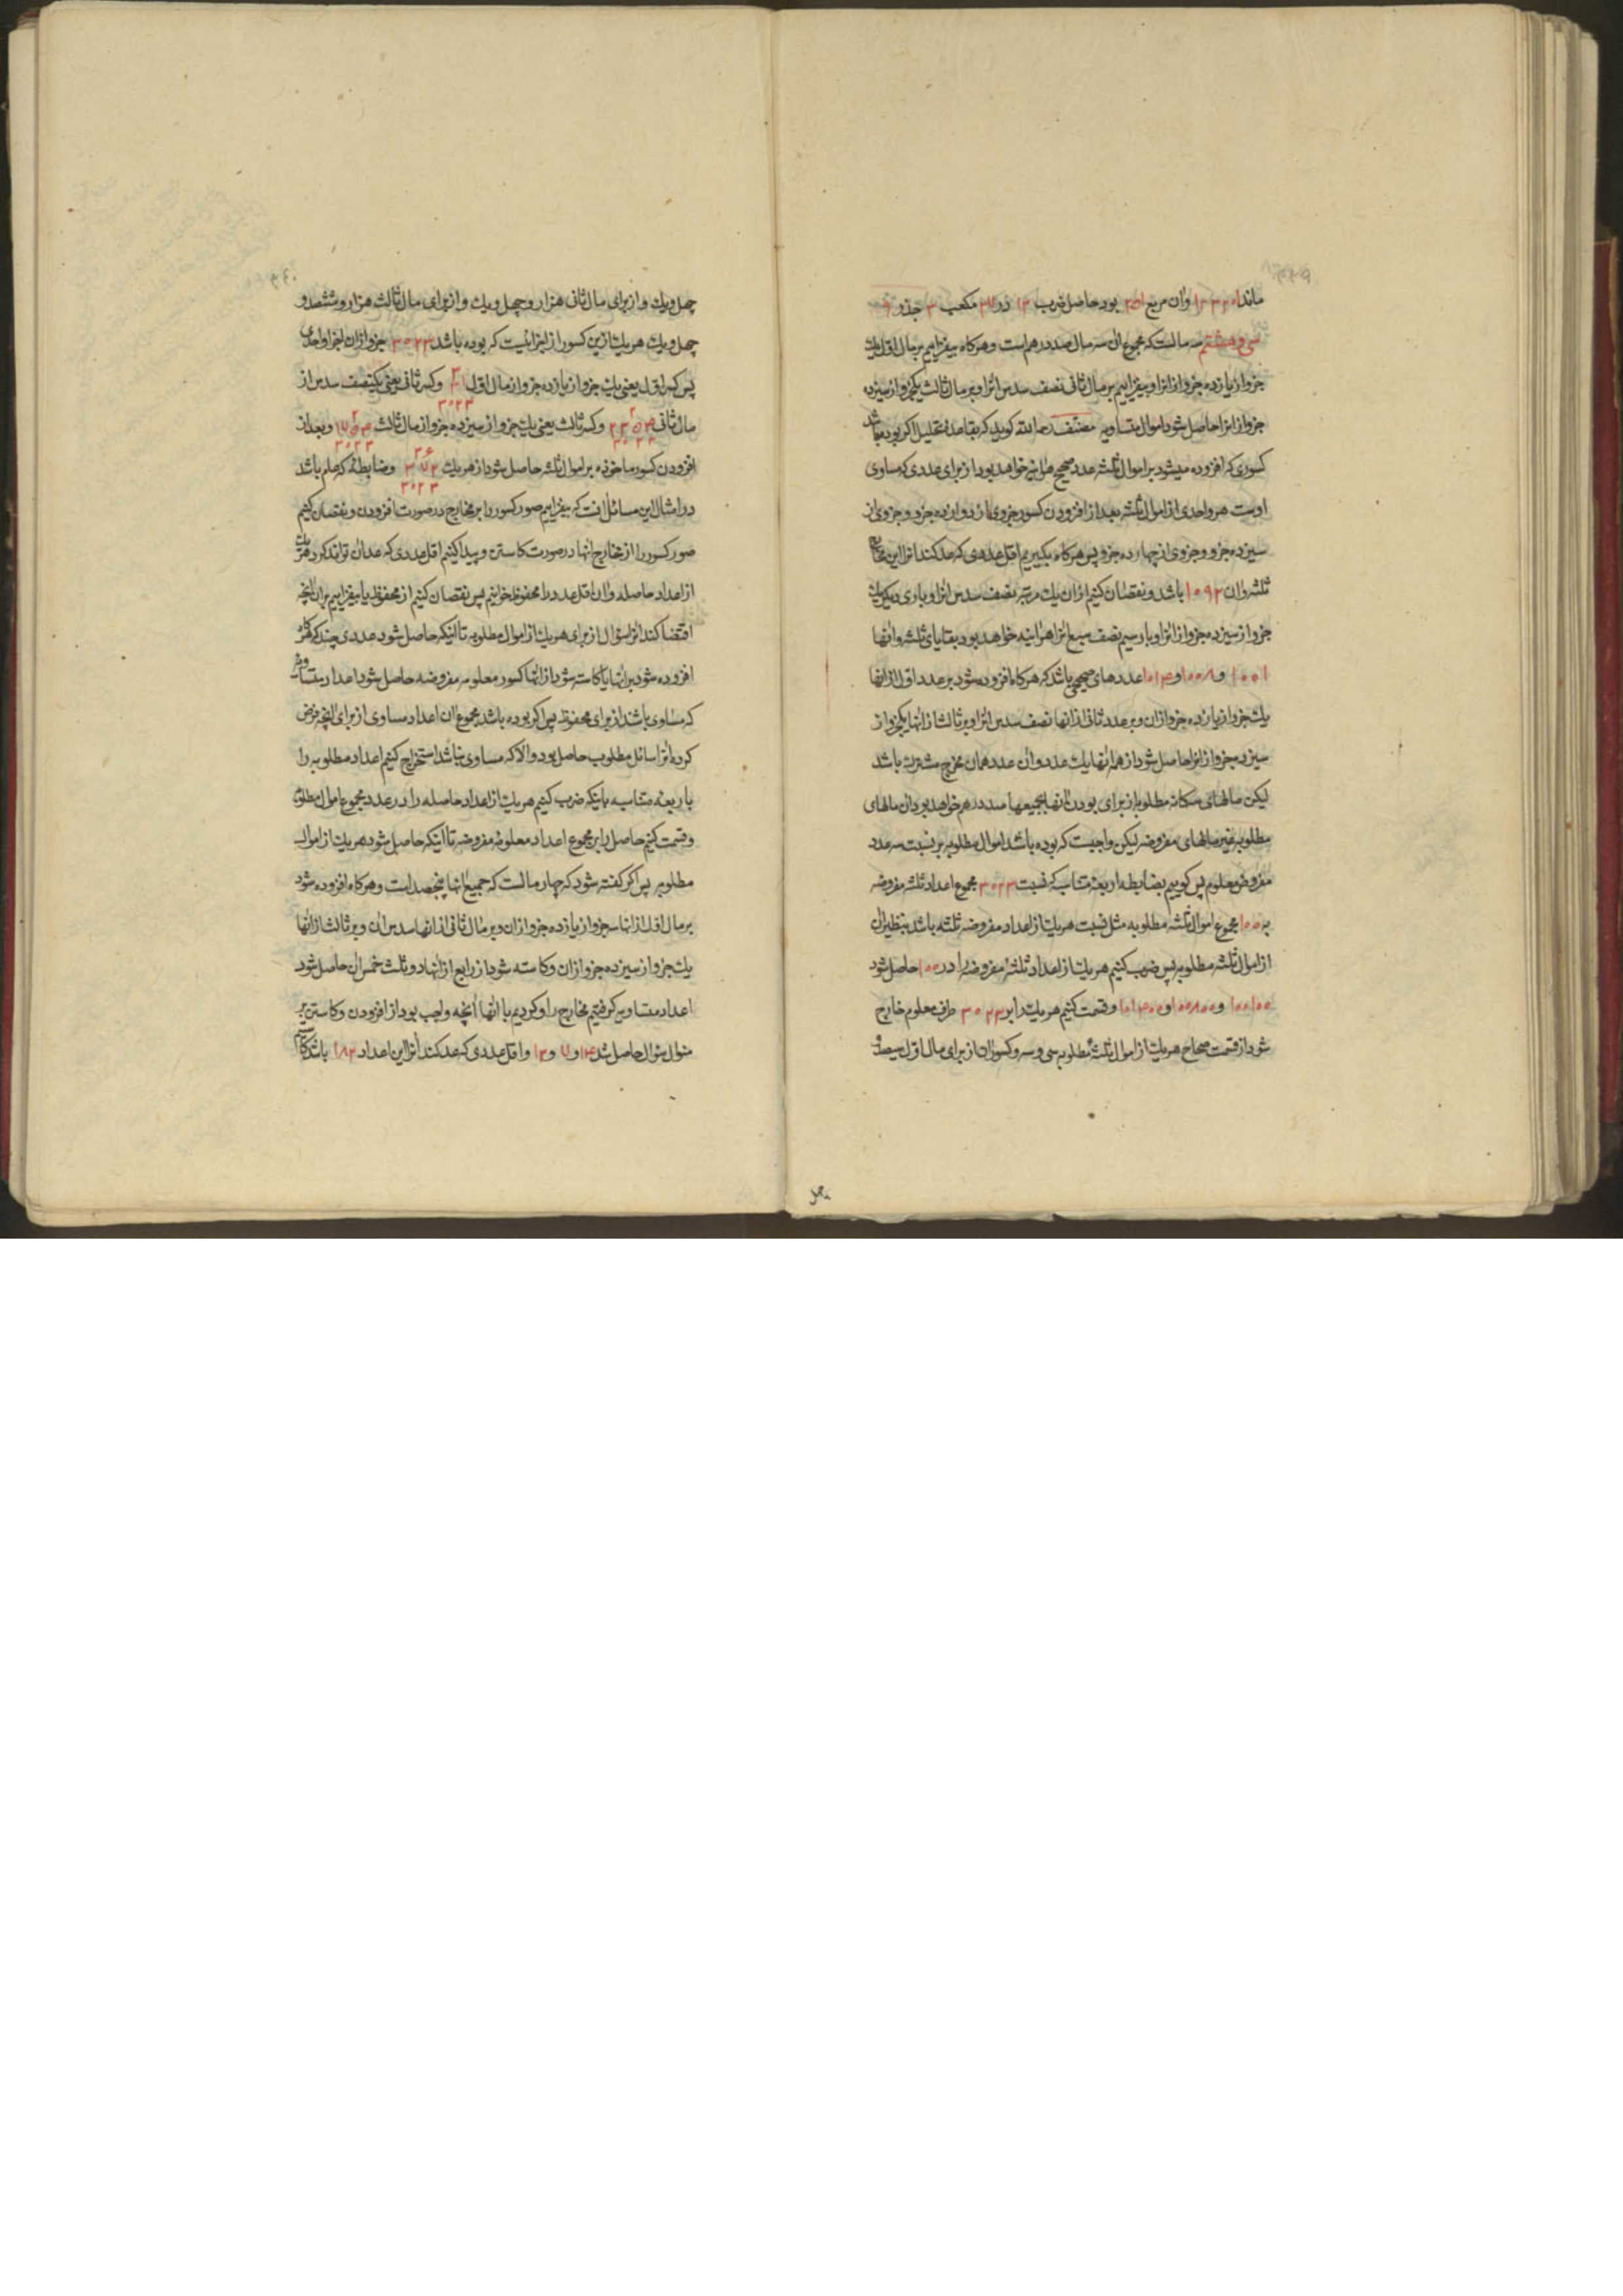 ماند ۱۲۳۲۰۱ وآن مربع ۳۵۱ بود حاصل ضرب ۱۳ در ۲۷ مکعب ۳ جذر ۹
سی و هشتم سه مالست که مجموع آن سه مال صد درهم است و هرکاه بیفزاییم بر مال اول یك
جزو از یازده جزو از انرا و بیفزاییم بر مال ثانی نصف سدس انرا و بر مال ثالث یکجزو از سیزده
جزو از انرا حاصل شود اموال متساویه مصنف رحمه الله کوید که بقاعدهٔ تحلیل اکر بوده باشد
کسوری که افزوده میشود بر اموال ثلثه عدد صحیح هراینه خواهد بود از برای عددی که مساوی
اوست هر واحدی از اموال ثلثه بعد از افزودن کسور جزوی از دوازده جزو و جزوی از
سیزده جزو و جزوی از چهارده جزو پس هرکاه بکیریم اقل عددی که عد کنند انرا این مخارج
ثلثه وآن ۱۰۹۲ باشد و نقصان کنیم ازان یك مرتبه نصف سدس انرا و باری دیکر یك
جزو از سیزده جزو از انرا و بار سیم نصف سبع انرا هراینه خواهد بود بقایای ثلثه و انها
۱۰۰۱ و ۱۰۰۸ و ۱۰۱۴ عددهای صحیحی باشد که هرکاه افزوده شود بر عدد اول از انها
یك جزو از یازده جزو ازان و بر عدد ثانی از انها نصف سدس انرا و بر ثالث از انها یکجزو از
سیزده جزو از انرا حاصل شود از همه انها یك عدد وان عدد همان مخرج مشترك باشد
لیکن مالهای سکانه مطلوبه از برای بودن انها بجمیعها صد درهم خواهد بود ان مالهای
مطلوبه غیر مالهای مفروضه لیکن واجبست که بوده باشد اموال مطلوبه بر نسبت سه عدد
مفروض معلوم پس کوییم بضابطه اربعهٔ متناسبه که نسبت ۳۰۲۳ مجموع اعداد ثلثه مفروضه
به ۱۰۰ مجموع اموال ثلثه مطلوبه مثل نسبت هریك از اعداد مفروضه ثلثه باشد بنظیران
از اموال ثلثه مطلوبه پس ضرب کنیم هریك از اعداد ثلثهٔ مفروضه را در ۱۰۰ حاصل شود
۱۰۰۱۰۰ و ۱۰۰۸۰۰ و ۱۰۱۴۰۰ و قسمت کنیم هریك را بر ۳۰۲۳ طرف معلوم خارج
شود از قسمت صحاح هریك از اموال ثلثهٔ مطلوبه سی و سه و کسور ان از برای مال اول سیصد و
چهل و یك و از برای مال ثانی هزار و چهل و یك و از برای مال ثالث هزار و ششصد و
چهل و یك هریك ازین کسور از اجزائیست که بوده باشد ۳۰۲۳ جزو ازان اجزا واحدی
پس کسر اول یعنی یك جزو از یازده جزو از مال اول و کسر ثانی یعنی یکنصف سدس از
مال ثانی و کسر ثالث یعنی یك جزو از سیزده جزو از مال ثالث و بعد از
افزودن کسور ماخوذه بر اموال ثلثه حاصل شود از هریك و ضابطهٔ که علم باشد
در امثال این مسائل انست که بیفزاییم صور کسور را بر مخارج در صورت افزودن و نقصان کنیم
صور کسور را از مخارج انها در صورت کاستن و پیدا کنیم اقل عددی که عد ان تواند کرد هریك
از اعداد حاصله وان اقل عدد را محفوظ خوانیم پس نقصان کنیم از محفوظ یا بیفزاییم بران انچه
اقتضا کند انرا سؤال از برای هریك از اموال مطلوبه تا اینکه حاصل شود عددی چند که هرکاه
افزوده شود بر انها یا کاسته شود از انها کسور معلومه مفروضه حاصل شود اعداد متساویه
که مساوی باشند از برای محفوظ پس اکر بوده باشد مجموع ان اعداد مساوی از برای انچه فرض
کرده انرا سائل مطلوب حاصل بود والا که مساوی نباشد استخراج کنیم اعداد مطلوبه را
باربعهٔ متناسبه باینکه ضرب کنیم هریك از اعداد حاصله را در عدد مجموع اموال مطلوبه
و قسمت کنیم حاصل را بر مجموع اعداد معلومهٔ مفروضه تا اینکه حاصل شود هریك از اموال
مطلوبه پس اکر کفته شود که چهار مالست که جمیع انها پنجصد است و هرکاه افزوده شود
بر مال اول از انها سه جزو از یازده جزو ازان و بر مال ثانی از انها سدس ان و بر ثالث از انها
یك جزو از سیزده جزو ازان و کاسته شود از رابع از انها دو ثلث خمس ان حاصل شود
اعداد متساویه کرفتیم مخارج را و کردیم با انها انچه واجب بود از افزودن و کاستن بر
منوال سؤال حاصل شد ۱۴ و ۷ و ۱۳ و اقل عددی که عد کند انرا این اعداد ۱۸۲ باشد